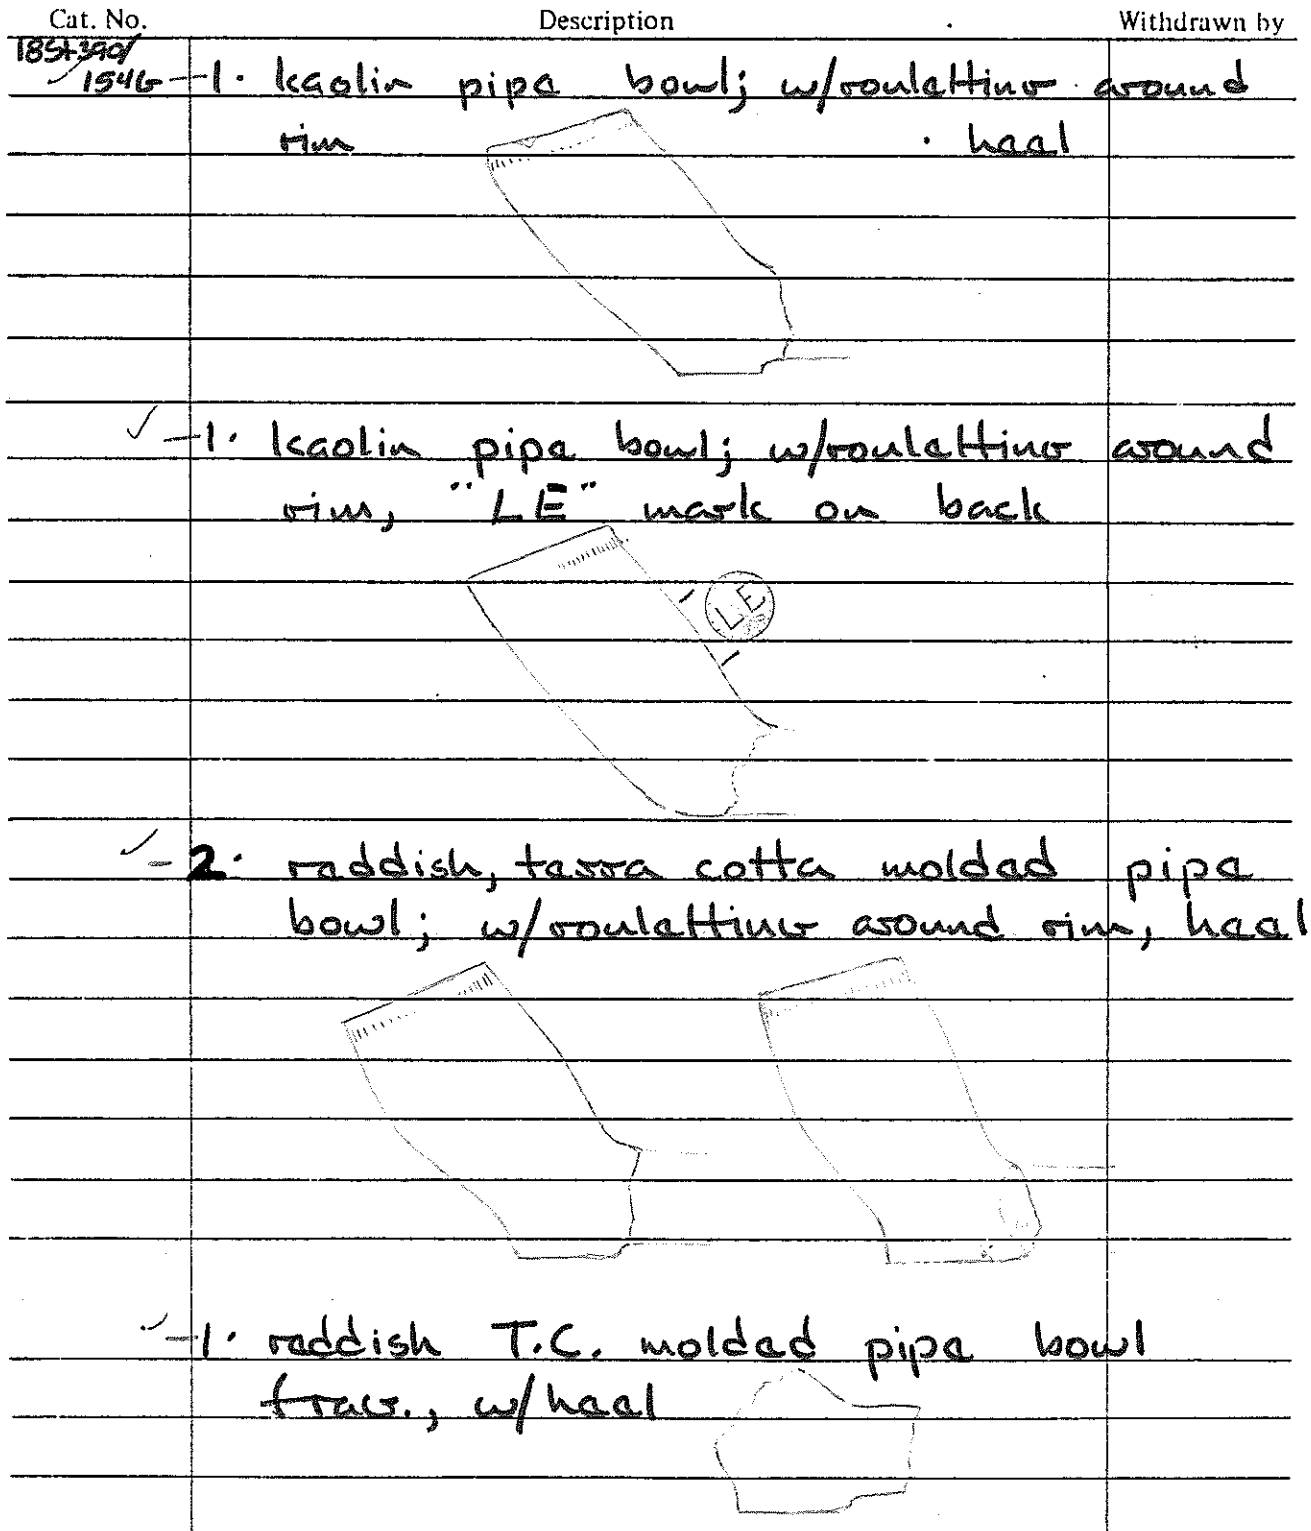 Cat. No. Description Withdrawn by
18St390/
154G -1. kaolin pipe bowl; w/rouletting around
rim heel
-1. kaolin pipe bowl; w/rouletting around
rim, "LE" mark on back
LE
-2. reddish, terra cotta molded pipe
bowl; w/rouletting around rim, heel
-1. reddish T.C. molded pipe bowl
frag., w/heel